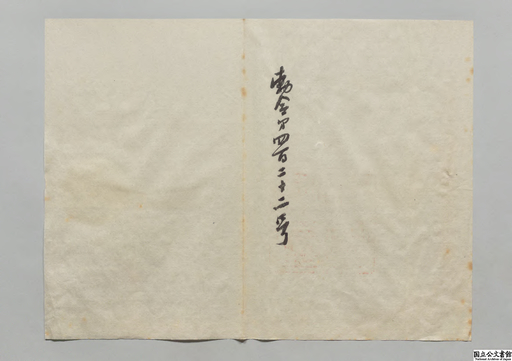 勅令第四百二十二号
国立公文書館
National Archives of Japan